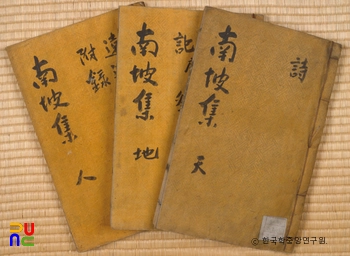 南坡集
人
附錄
南坡集
地
記
南坡集
天
詩
© 한국학중앙연구원